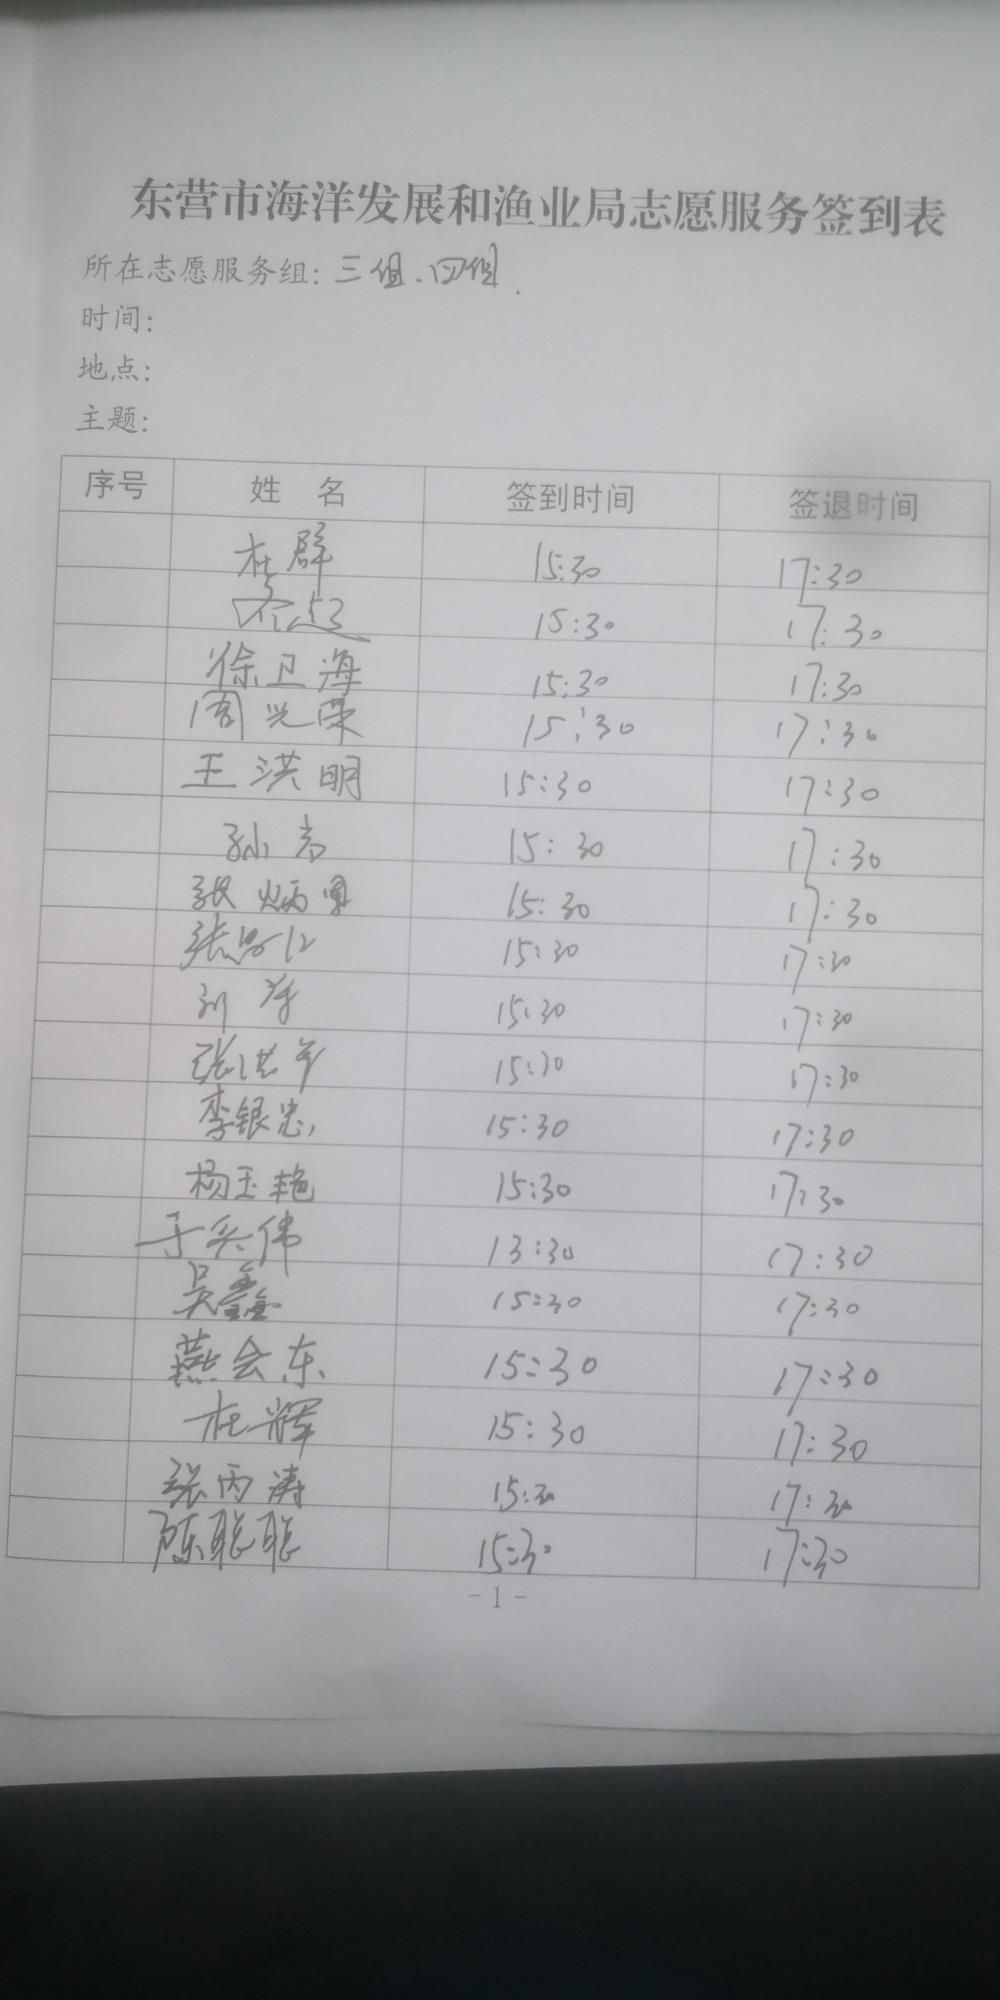 东营市海洋发展和渔业局志愿服务签到表
所在志愿服务组: 三组、四组
时间:
地点:
主题:
序号 姓 名 签到时间 签退时间
杜群 15:30 17:30
15:30 17:30
徐卫海 15:30 17:30
周光荣 15:30 17:30
王洪明 15:30 17:30
孙 15:30 17:30
张炳 15:30 17:30
张 15:30 17:30
刘 15:30 17:30
张洪军 15:30 17:30
李银忠 15:30 17:30
杨玉艳 15:30 17:30
于兵伟 13:30 17:30
吴鑫 15:30 17:30
燕会东 15:30 17:30
杜辉 15:30 17:30
张丙涛 15:30 17:30
陈聪聪 15:30 17:30
- 1 -